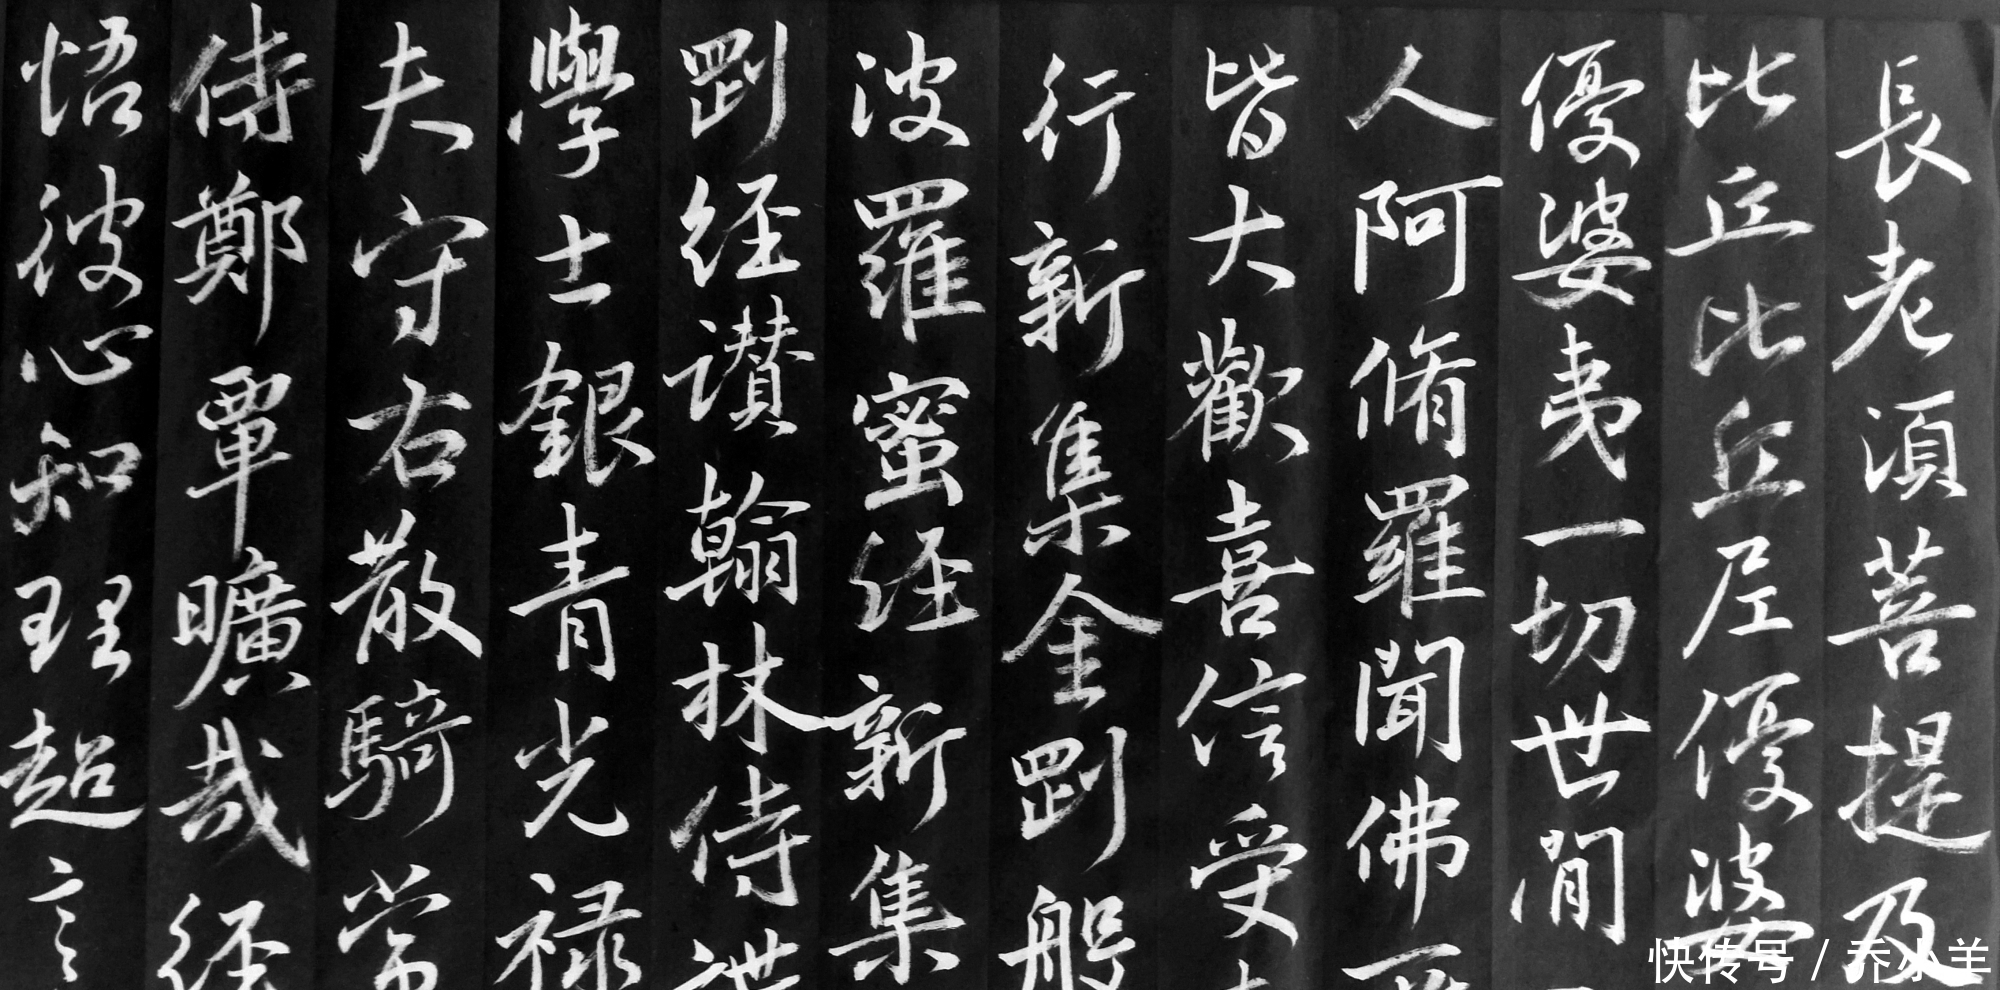 長老湏菩提及
比丘比丘尼優婆
優婆夷一切世間
人阿脩羅聞佛
皆大歡喜信受
行新集金剛般
波羅蜜经新集
剛经讃翰林侍
學士銀青光禄
夫守右散騎常
侍鄭覃曠哉经
悟彼心知理超言
快传号 / 乔小羊